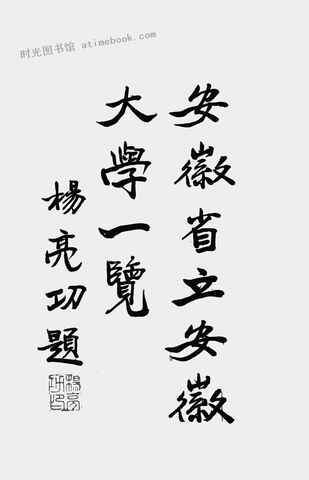 时光图书馆 atimebook.com
安徽省立安徽
大學一覽
楊亮功題